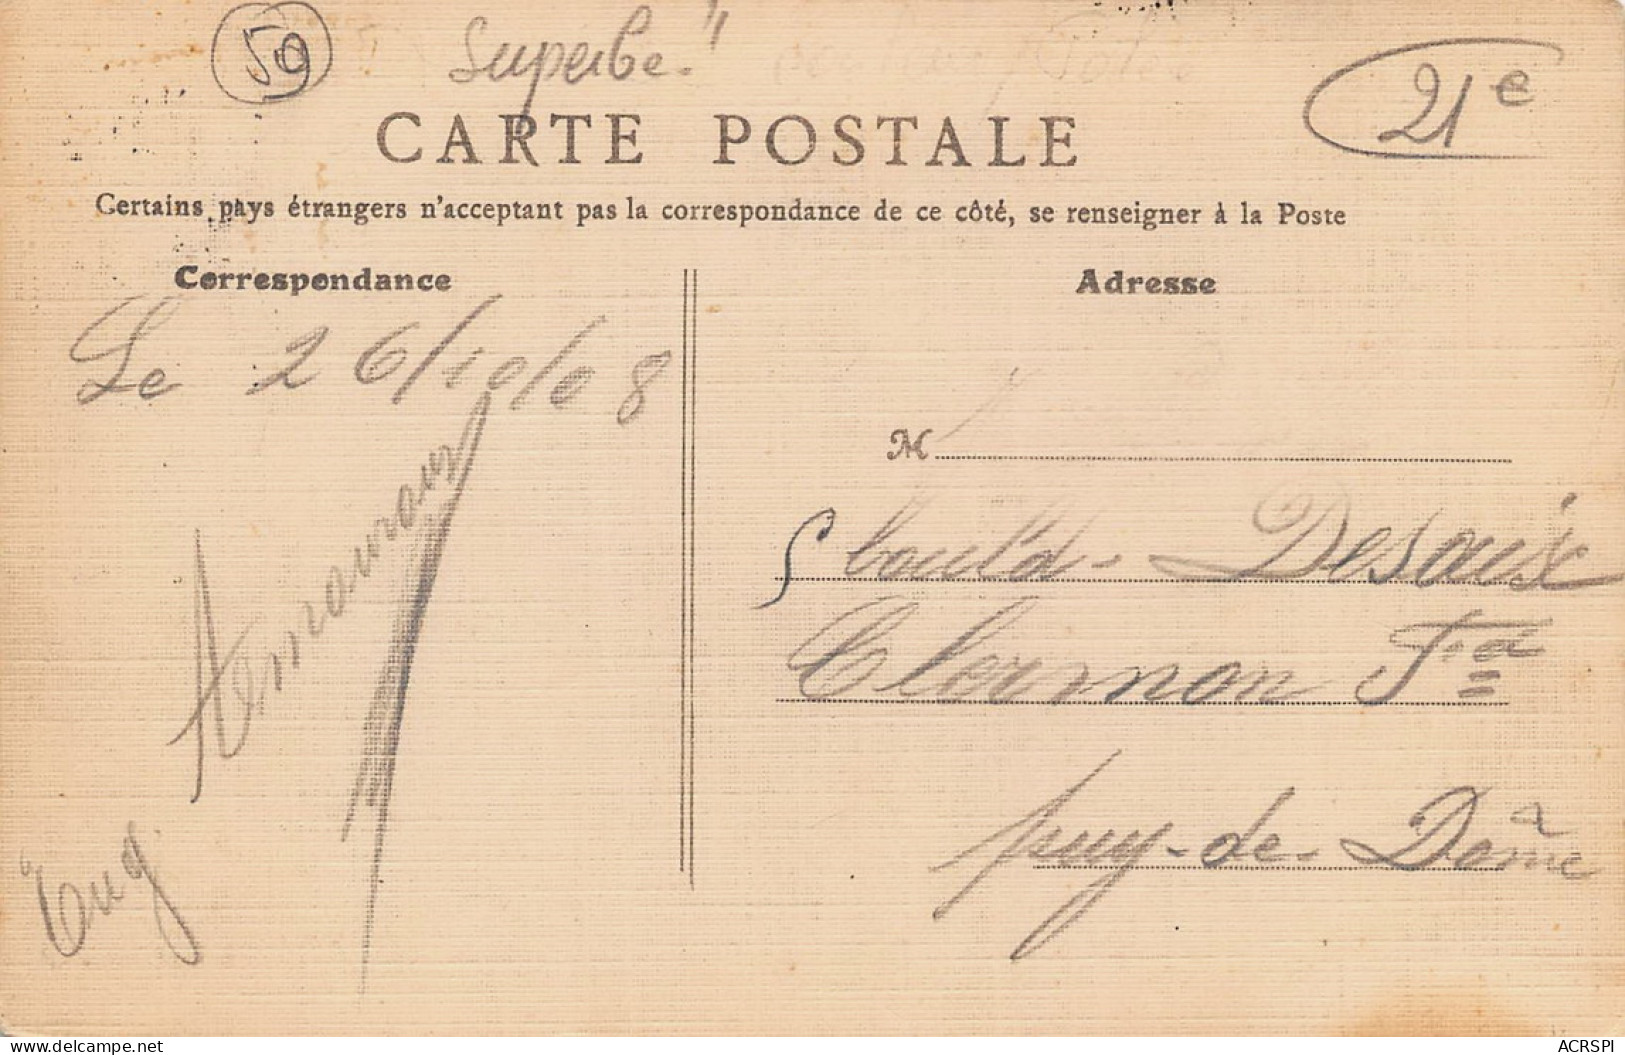 59
Superbe"
21 e
CARTE POSTALE
Certains pays étrangers n'acceptant pas la correspondance de ce côté, se renseigner à la Poste
Correspondance
Le 26/10/08
Eug Amouroux
Adresse
M
5 bould - Desaix
Clermon Fd
puy-de-Dôme
www.delcampe.net
ACRSPI